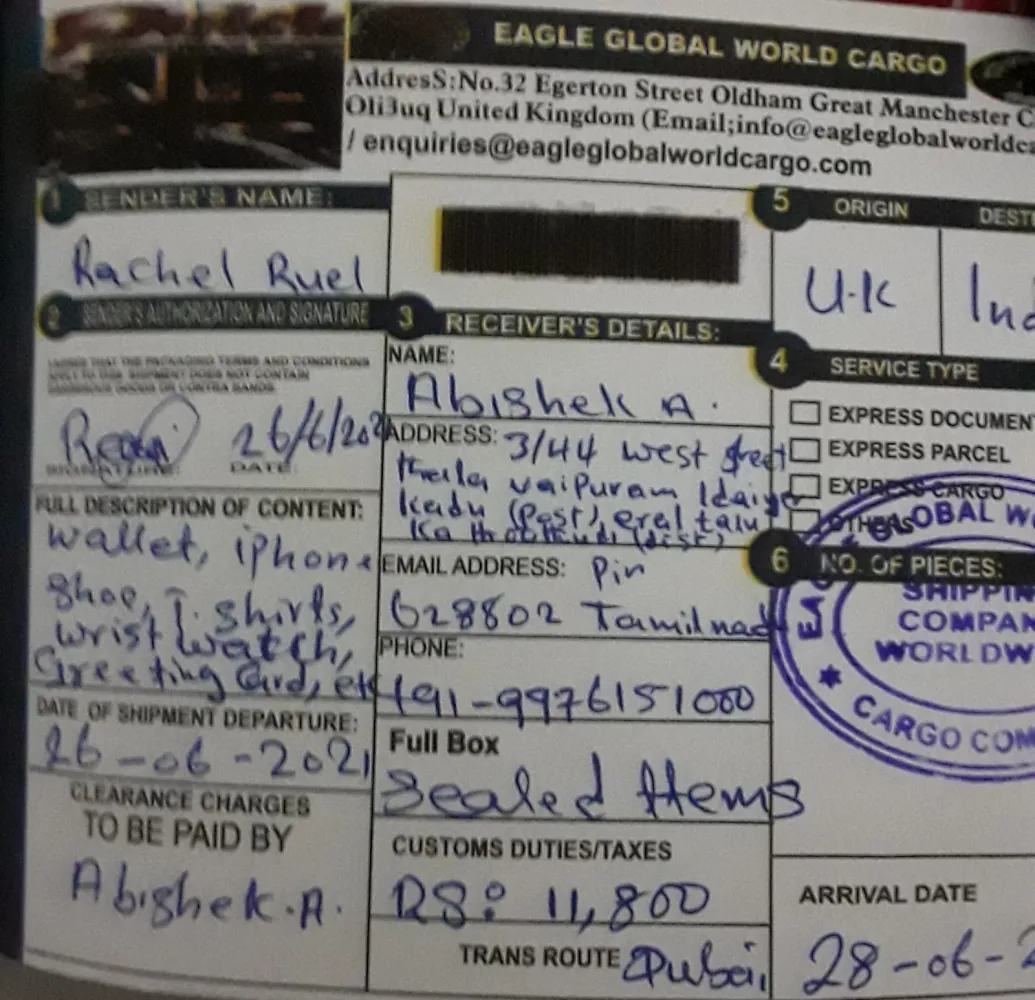 EAGLE GLOBAL WORLD CARGO
AddresS:No.32 Egerton Street Oldham Great Manchester
Oli3uq United Kingdom (Email;info@eagleglobalworldca
/ enquiries@eagleglobalworldcargo.com
1 SENDER'S NAME:
Rachel Ruel
2 SENDER'S AUTHORIZATION AND SIGNATURE
I AGREE THAT THE PACKAGING TERMS AND CONDITIONS
APPLY TO THIS SHIPMENT DOES NOT CONTAIN
DANGEROUS GOODS OR CONTRA BANDS.
26/6/202
SIGNATURE: DATE:
FULL DESCRIPTION OF CONTENT:
wallet, iphone
Shoe, T. Shirts,
wrist watch,
Greeting Card, etc
DATE OF SHIPMENT DEPARTURE:
26-06-2021
CLEARANCE CHARGES
TO BE PAID BY
Abishek.A.
3 RECEIVER'S DETAILS:
NAME:
Abishek A.
ADDRESS: 3/44 west street
Keela vaipuram Idaiya
Kadu (Post), eral talu
(dist)
EMAIL ADDRESS: Pin
628802 Tamilnad
PHONE:
+91-9976151000
Full Box
Sealed Items
CUSTOMS DUTIES/TAXES
RS: 11,800
TRANS ROUTE Dubai,
5 ORIGIN DEST
U.K Ind
4 SERVICE TYPE
EXPRESS DOCUMEN
EXPRESS PARCEL
EXPRESS CARGO
OTHERS
6 NO. OF PIECES:
EA GLOBAL W
SHIPPIN
COMPAN
WORLDW
CARGO COM
ARRIVAL DATE
28-06-2